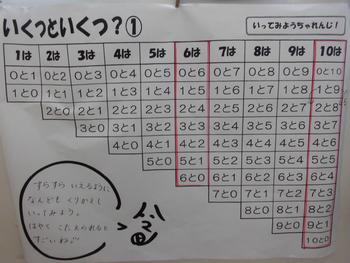 いくつといくつ？①
いってみようちゃれんじ！
1は 2は 3は 4は 5は 6は 7は 8は 9は 10は
0と1 0と2 0と3 0と4 0と5 0と6 0と7 0と8 0と9 0と10
1と0 1と1 1と2 1と3 1と4 1と5 1と6 1と7 1と8 1と9
2と0 2と1 2と2 2と3 2と4 2と5 2と6 2と7 2と8
3と0 3と1 3と2 3と3 3と4 3と5 3と6 3と7
4と0 4と1 4と2 4と3 4と4 4と5 4と6
5と0 5と1 5と2 5と3 5と4 5と5
6と0 6と1 6と2 6と3 6と4
7と0 7と1 7と2 7と3
8と0 8と1 8と2
9と0 9と1
10と0
すらすら いえるように
なんども くりかえし
いってみよう。
はやく こたえられると
すごいね♪